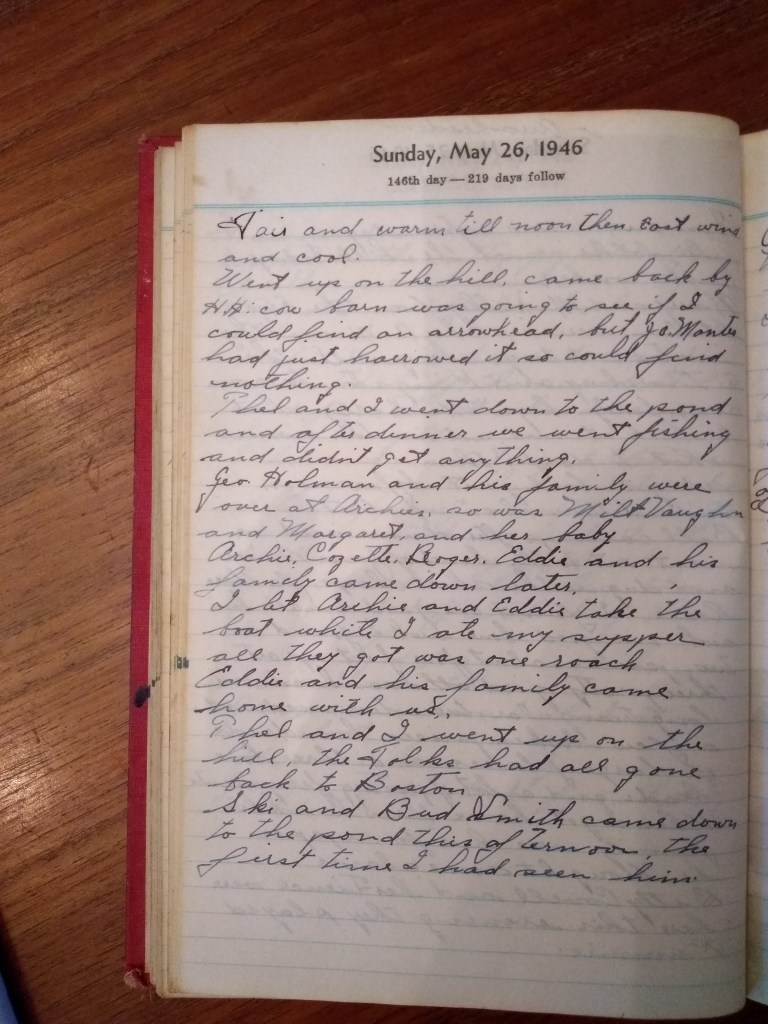 Sunday, May 26, 1946
146th day — 219 days follow
Fair and warm till noon then East wind
and cool.
Went up on the hill, came back by
H.H. cow barn was going to see if I
could find an arrowhead, but Jo. Mantes
had just harrowed it so could find
nothing.
Phel and I went down to the pond
and after dinner we went fishing
and didn't get anything.
Geo. Holman and his family were
over at Archies, so was Milt Vaughn
and Margaret, and her baby
Archie, Cozette, Roger, Eddie and his
family came down later.
I let Archie and Eddie take the
boat while I ate my supper
all they got was one roach
Eddie and his family came
home with us.
Phel and I went up on the
hill, the Folks had all gone
back to Boston
Ski and Bud Smith came down
to the pond this afternoon, the
first time I had seen him.